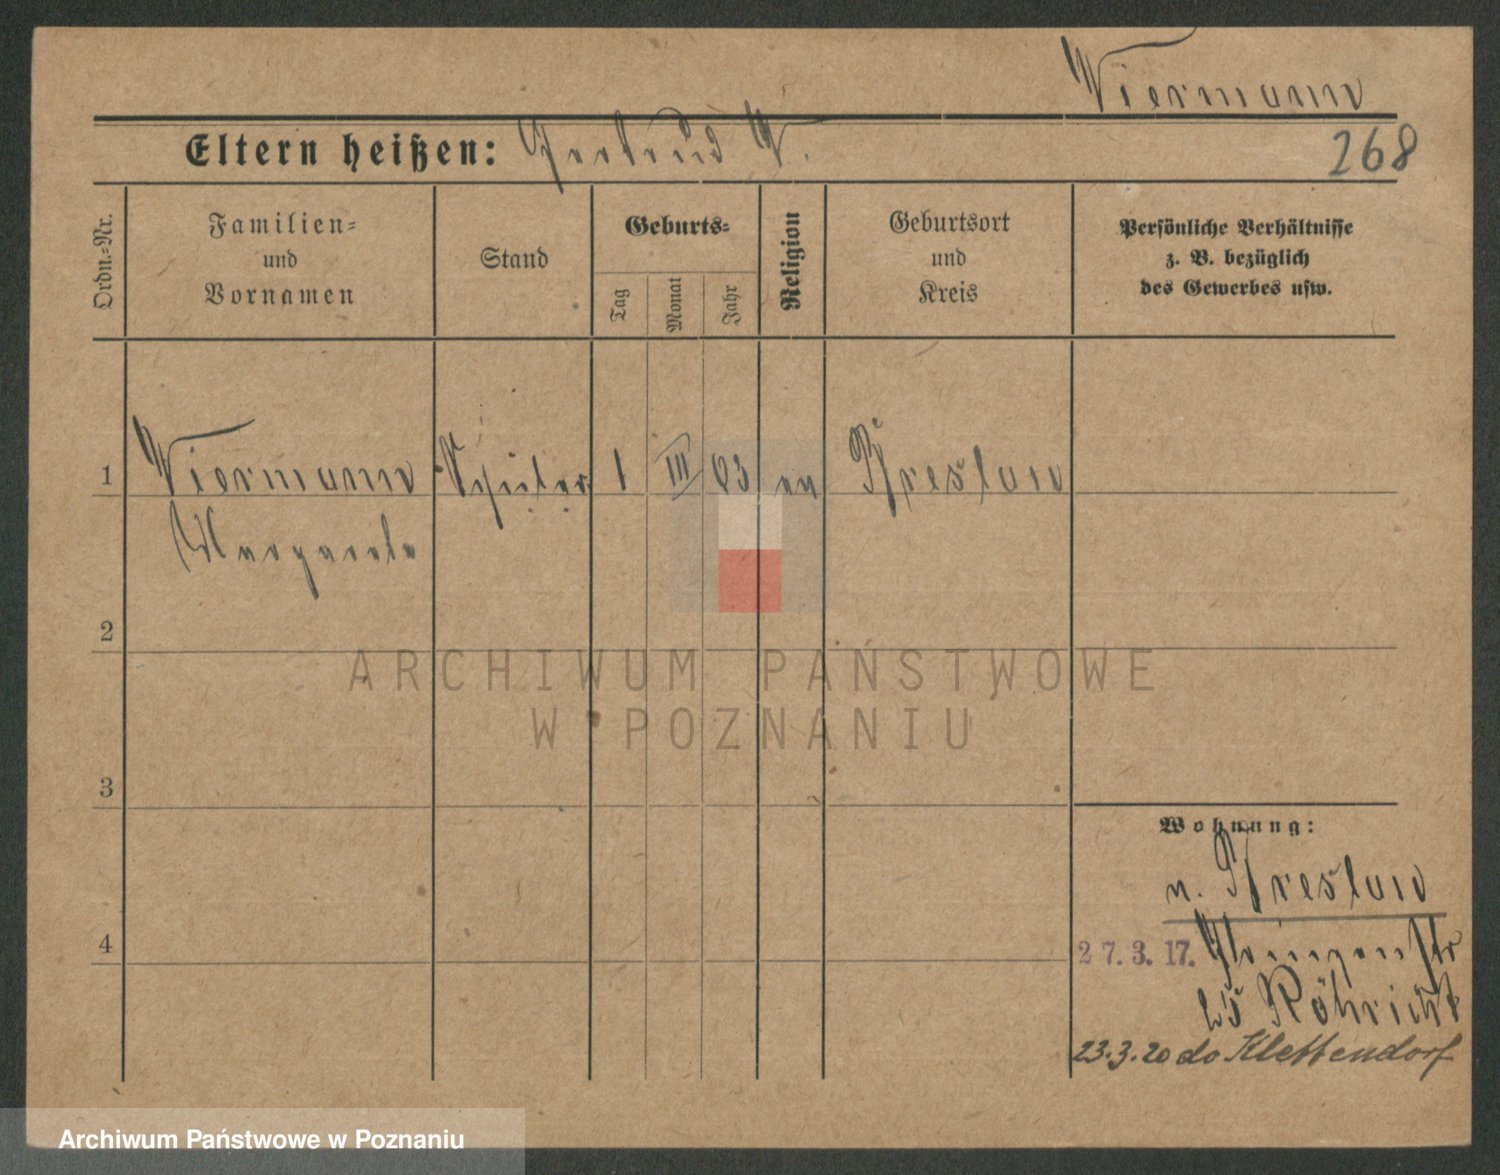 Viermann
Eltern heißen: Gertrud V.
268
Ordn.-Nr.
Familien- und Vornamen
Stand
Geburts-
Tag
Monat
Jahr
Religion
Geburtsort und Kreis
Persönliche Verhältnisse z. B. bezüglich des Gewerbes usw.
1 Viermann Schüler 1 III 03 ev Breslau
Margarete
2
ARCHIWUM PAŃSTWOWE
W POZNANIU
3
Wohnung:
n. Breslau
4
27.3.17.
Röhricht
23.3.20 do Klettendorf
Archiwum Państwowe w Poznaniu